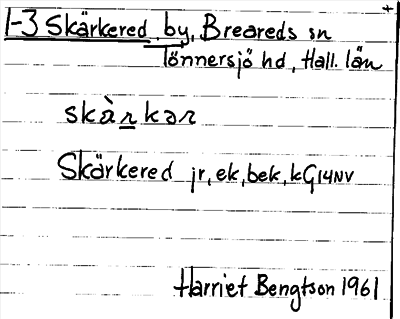 1-3 Skärkered, by, Breareds sn
Tönnersjö hd, Hall. län
skàrkər
Skärkered jr, ek, bek, kG14NV
Harriet Bengtson 1961